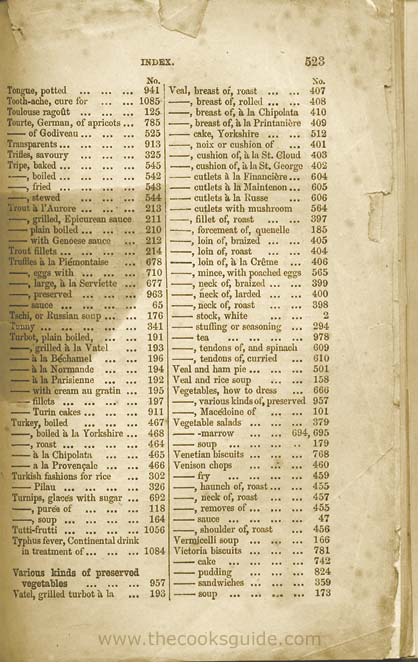 INDEX. 523
No.
Tongue, potted ... ... ... 941
Tooth-ache, cure for ... ... 1085
Toulouse ragoût ... ... ... 125
Tourte, German, of apricots ... 785
—— of Godiveau ... ... ... 525
Transparents ... ... ... ... 913
Trifles, savoury ... ... ... 325
Tripe, baked ... ... ... ... 545
——, boiled ... ... ... ... 542
——, fried ... ... ... ... 543
——, stewed ... ... ... 544
Trout à l'Aurore ... ... ... 213
——, grilled, Epicurean sauce 211
—— plain boiled ... ... ... 210
—— with Genoese sauce ... 212
Trout fillets ... ... ... ... 214
Truffles à la Piémontaise ... 678
——, eggs with ... ... ... 710
——, large, à la Serviette ... 677
——, preserved ... ... ... 963
—— sauce ... ... ... ... 65
Tschi, or Russian soup ... ... 176
Tunny ... ... ... ... ... 341
Turbot, plain boiled, ... ... 191
——, grilled à la Vatel ... 193
—— à la Béchamel ... ... 196
—— à la Normande ... ... 194
—— à la Parisienne ... ... 192
—— with cream au gratin ... 195
—— fillets ... ... ... ... 197
—— Turin cakes ... ... ... 911
Turkey, boiled ... ... ... 467
——, boiled à la Yorkshire ... 468
——, roast ... ... ... ... 464
—— à la Chipolata ... ... 465
—— a la Provençale ... ... 466
Turkish fashions for rice ... 302
—— Pilau ... ... ... ... 326
Turnips, glacés with sugar ... 692
——, purée of ... ... ... 118
——, soup ... ... ... ... 164
Tutti-frutti ... ... ... ... 1056
Typhus fever, Continental drink
in treatment of ... ... ... 1084
Various kinds of preserved
vegetables ... ... ... 957
Vatel, grilled turbot à la ... 193
No.
Veal, breast of, roast ... ... 407
——, breast of, rolled ... ... 408
——, breast of, à la Chipolata 410
——, breast of, à la Printanière 409
—— cake, Yorkshire ... ... 512
——, noix or cushion of ... 401
——, cushion of, à la St. Cloud 403
——, cushion of, à la St. George 402
—— cutlets à la Financière ... 604
—— cutlets à la Maintenon ... 605
—— cutlets à la Russe ... 606
—— cutlets with mushroom 564
——, fillet of, roast ... ... 397
——, forcemeat of, quenelle 185
——, loin of, braized ... ... 405
——, loin of, roast ... ... 404
——, loin of, à la Crême ... 406
——, mince, with poached eggs 565
——, neck of, braized ... ... 399
——, neck of, larded ... ... 400
——, neck of, roast ... ... 398
—— stock, white ... ... ... 2
—— stuffing or seasoning ... 294
—— tea ... ... ... ... ... 978
——, tendons of, and spinach 609
——, tendons of, curried ... 610
Veal and ham pie ... ... ... 501
Veal and rice soup ... ... 158
Vegetables, how to dress ... 666
——, various kinds of, preserved 957
——, Macédoine of ... ... 101
Vegetable salads ... ... ... 379
—— -marrow ... ... 694, 695
—— soup ... ... ... ... 179
Venetian biscuits ... ... ... 768
Venison chops ... ... ... 460
—— fry ... ... ... ... 459
——, haunch of, roast ... ... 455
——, neck of, roast ... ... 457
——, removes of ... ... ... 455
—— sauce ... ... ... ... 47
——, shoulder of, roast ... 456
Vermicelli soup ... ... ... 166
Victoria biscuits ... ... ... 781
—— cake ... ... ... ... 742
—— pudding ... ... ... 824
—— sandwiches ... ... ... 359
—— soup ... ... ... ... 173
www.thecooksguide.com